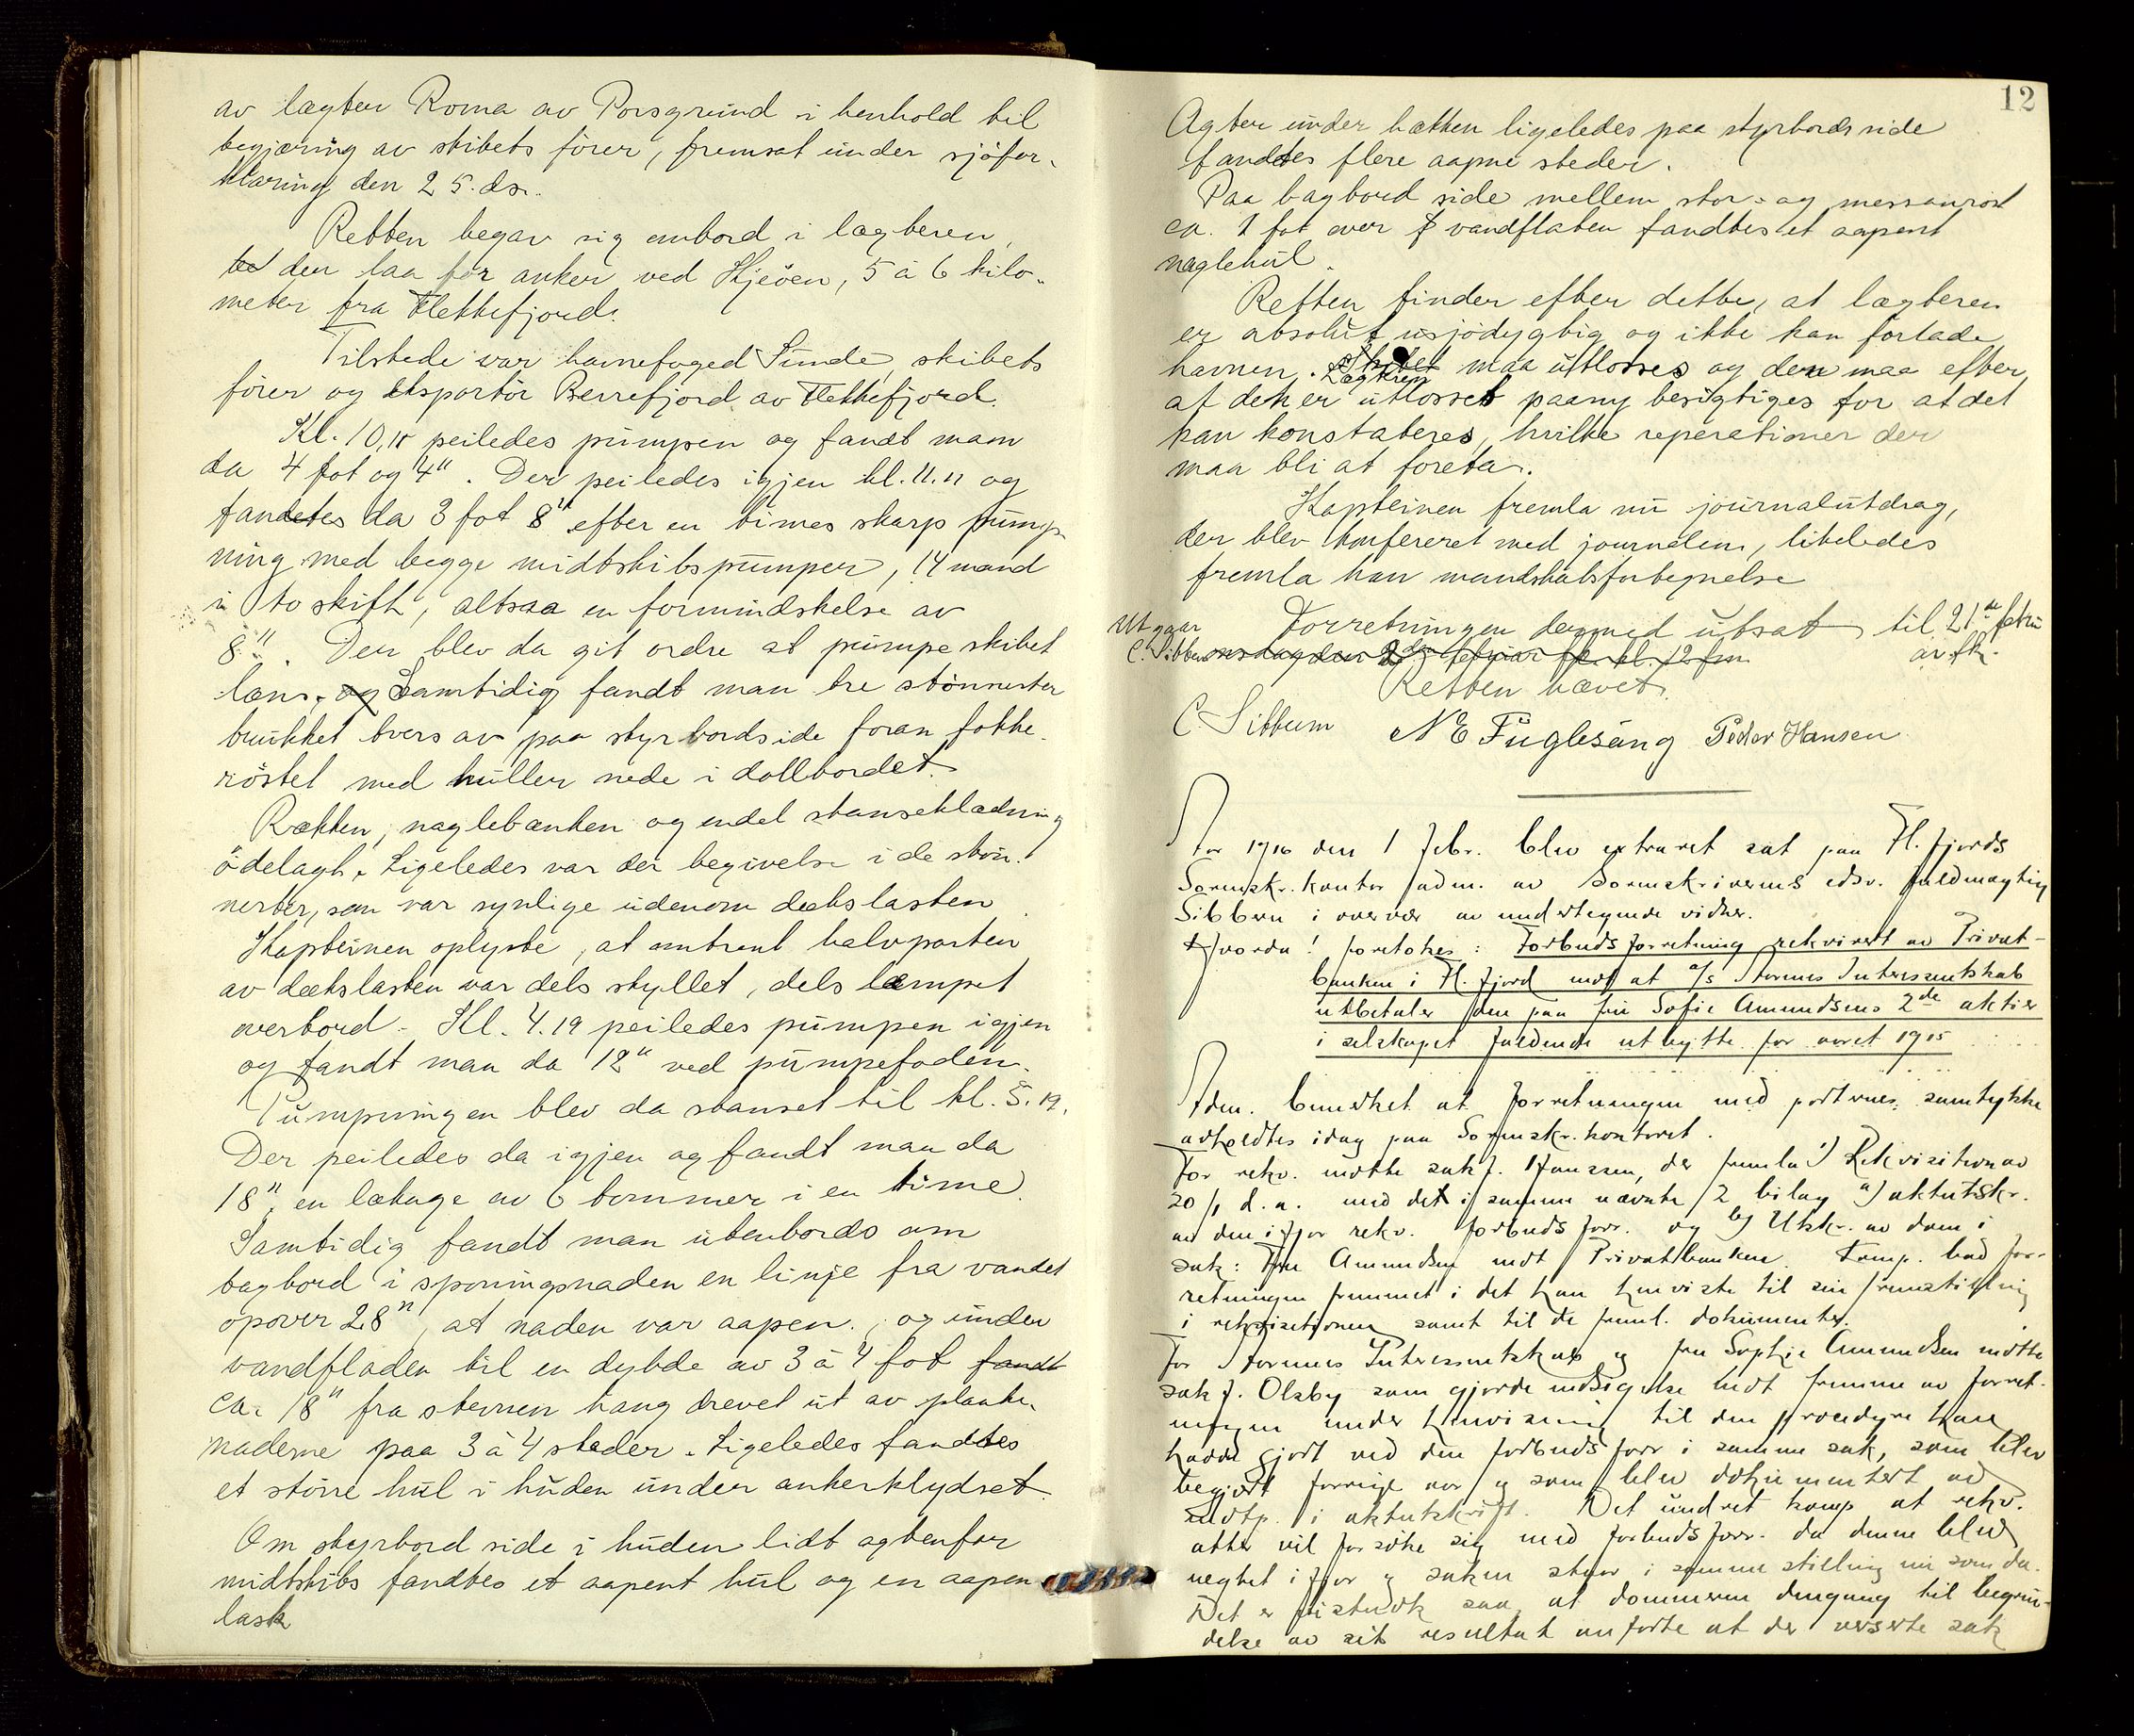 av lægten Roma av Porsgrund i henhold til
begjæring av skibets fører, fremsat under sjöfor-
klaring den 25. ds.
Retten begav sig ombord i lægteren,
der laa for anker ved Hjeöen, 5 à 6 kilo-
meter fra Flekkefjord.
Tilstede var havnefoged Sunde, skibets
förer og eksportör Berrefjord av Flekkefjord.
Kl. 10,15 peiledes pumpen og fandt mam
da 4 fot og 4". Der peiledes igjen kl. 11.11 og
fandtes da 3 fot 8" efter en times skarp pump-
ning med begge midtskibspumper, 14 mand
i to skift, altsaa en formindskelse av
8". Der blev da git ordre at pumpe skibet
læns. og Samtidig fandt man tre stönnerter
brukket tvers av paa styrbordside foran fokke-
röstet med huller nede i dollbordet.
Rækken, naglebænken og endel skanseklædning
ödelagt. Ligeledes var der begivelse i de stön-
nerter, som var synlige udenom dækslasten.
Kapteinen oplyste, at omtrent halvparten
av dækslasten var dels skyllet, dels læmpet
overbord. Kl. 4.19 peiledes pumpen igjen
og fandt man da 12" ved pumpefoden.
Pumpningen blev da stanset til kl. 5.19.
Der peiledes da igjen og fandt man da
18", en lækage av 6 tommer i en time.
Samtidig fandt man utenbords om
bagbord i sponingsnaden en linje fra vandet
opover 28", at naden var aapen, og under
vandfladen til en dybde av 3 à 4 fot fandt
ca. 18" fra stevnen hang drevet ut av planke-
naderne paa 3 à 4 steder. Ligeledes fandtes
et större hul i huden under ankerklydset.
Om styrbord side i huden lidt agtenfor
midtskibs fandtes et aapent hul og en aapen
lask
12
Agter under hækken ligeledes paa styrbords side
fandtes flere aapne steder.
Paa bagbord side mellem stor- og mesanröst
ca. 1 fot over vandflaten fandtes et aapent
naglehul.
Retten finder efter dette, at lægteren
er absolut usjödygtig og ikke kan forlade
havnen. Skibet maa utlosses og den maa efter
Lægteren
at den er utlosset paany besigtiges for at det
kan konstateres, hvilke reperationer der
maa bli at foreta.
Kapteinen fremla nu journalutdrag,
der blev konfereret med journalen, likeledes
fremla han mandskabsfortegnelse
Utgaar Forretningen dermed utsat til 21de febru
C. Sibbern onsdag den 2den februar kl. 12 fm.
Retten hævet.
C Sibbern N E Fuglesang Peder Hansen
Aar 1916 den 1 Febr. blev extraret sat paa Fl.fjords
Sorenskr. kontor adm. av Sorenskriverens edsv. fuldmægtig
Sibbern i overvær av undertegnede vidner.
Hvorda! foretokes: Forbudsforretning rekvirert av Privat-
banken i Fl.fjord mot at a/s Stormes Interessentskab
utbetaler den paa fru Sofie Amundsens 2de aktier
i selskapet faldende utbytte for aaret 1915
Adm. bemerket at forretningen med parternes samtykke
avholdtes idag paa Sorenskr. kontoret.
For rekv. møtte sakf. Hanssen, der fremla 1) Rekvisition av
20/1 d.a. med det i samme nævnte 2 bilag a) aktutskr.
av den ifjor rekv. forbudsforr. og b) Utskr. av dom i
sak: Fru Amundsen mot Privatbanken. Komp. bad for-
retningen fremmet i det han henviste til sin fremstilling
i rekvisitionen samt til de freml. dokumenter.
For Stormes Interessentskab og fru Sophie Amundsen møtte
sakf. Olsby som gjorde indsigelse mot fremme av forret-
ningen under henvisning til den procedyre han
hadde gjort ved den forbudsforr i samme sak, som blev
begjært forrige aar og som blev dokumentert av
motp. i aktutskrift. Det undret komp at rekv.
atter vil forsøke sig med forbudsforr. da denne blev
negtet ifjor og saken staar i samme stilling nu som da.
Det er saa at dommeren dengang til begrun-
delse av sit resultat anførte at der verserte sak